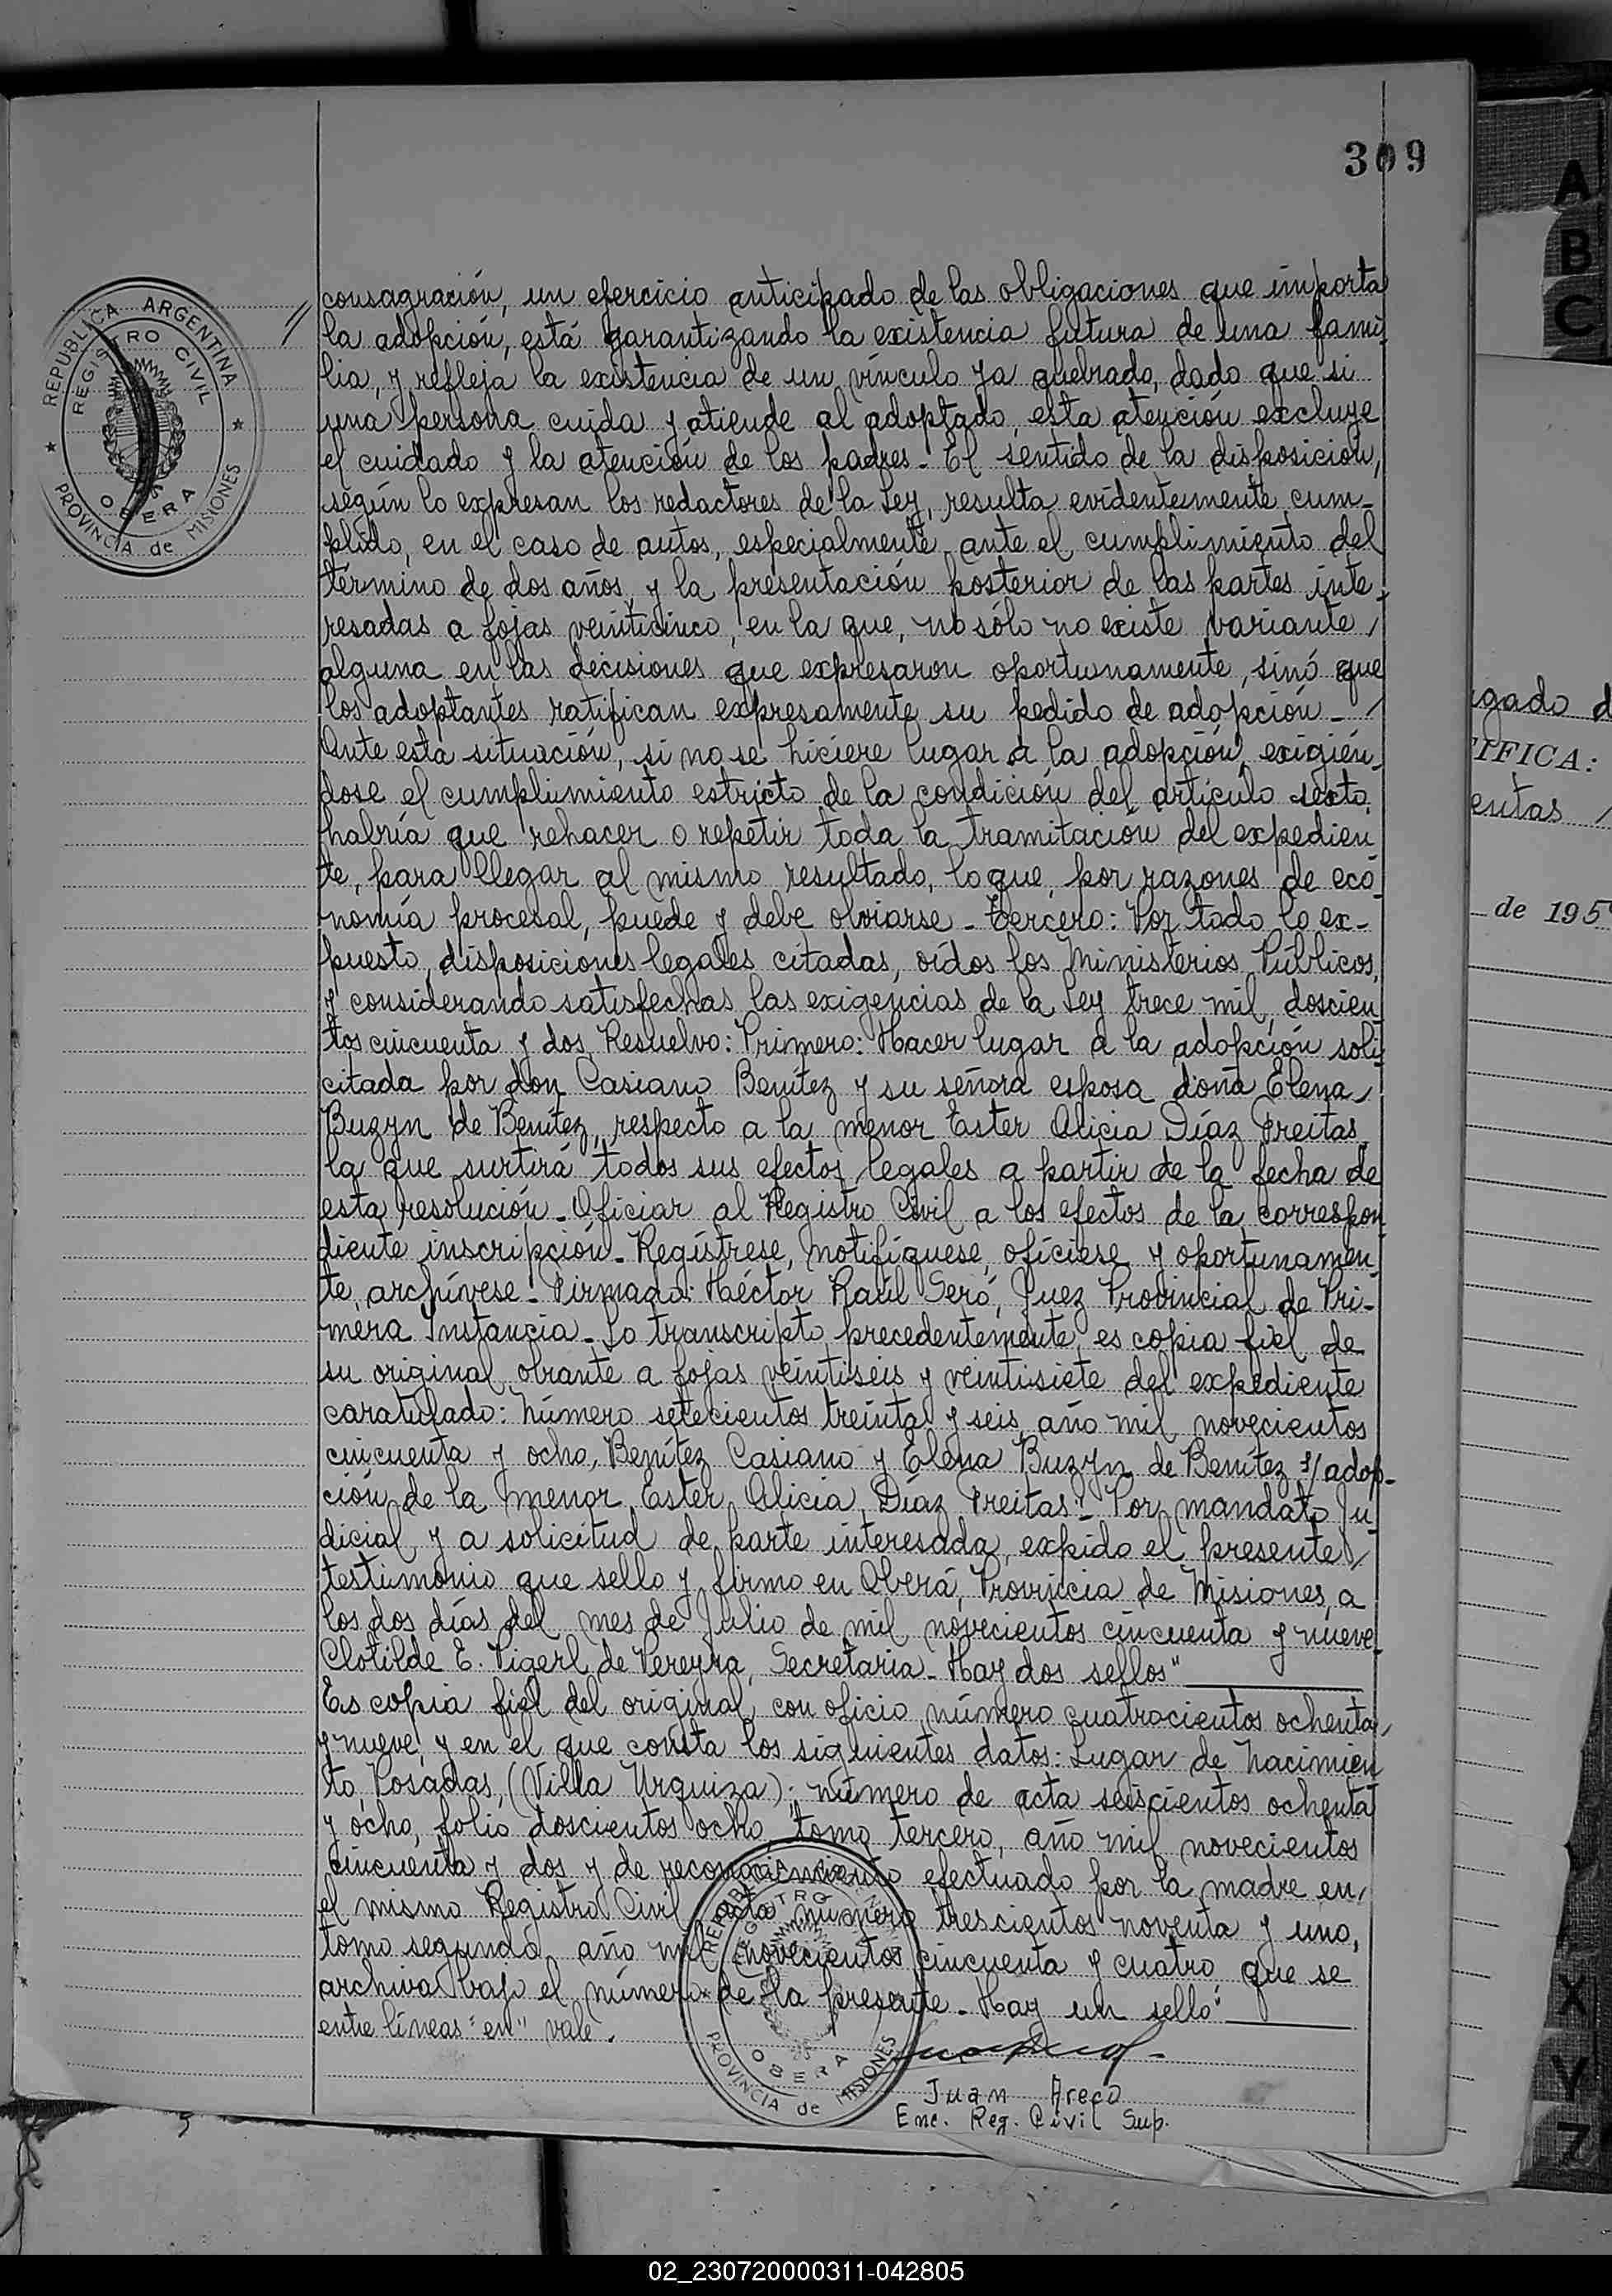 309
REPUBLICA ARGENTINA
REGISTRO CIVIL
OBERA
PROVINCIA de MISIONES
// consagración, un ejercicio anticipado de las obligaciones que importa
la adopción, está garantizando la existencia futura de una fami-
lia, y refleja la existencia de un vínculo ya quebrado, dado que si
una persona cuida y atiende al adoptado, esta atención excluye
el cuidado y la atención de los padres- El sentido de la disposición,
según lo expresan los redactores de la Ley, resulta evidentemente cum-
plido, en el caso de autos, especialmente ante el cumplimiento del
término de dos años, y la presentación posterior de las partes inte-
resadas a fojas veinticinco, en la que, no sólo no existe variante /
alguna en las decisiones que expresaron oportunamente, sinó que
los adoptantes ratifican expresamente su pedido de adopción- /
Ante esta situación, si no se hiciere lugar a la adopción, exigién-
dose el cumplimiento estricto de la condición del artículo sexto,
habría que rehacer o repetir toda la tramitación del expedien
te, para llegar al mismo resultado, lo que, por razones de eco-
nomía procesal, puede y debe obviarse- Tercero: Por todo lo ex-
puesto, disposiciones legales citadas, oídos los Ministerios Públicos,
y considerando satisfechas las exigencias de la Ley trece mil, doscien
tos cincuenta y dos, Resuelvo: Primero: Hacer lugar a la adopción soli
citada por don Casiano Benítez y su señora esposa doña Elena /
Buzyn de Benítez, respecto a la menor Ester Alicia Díaz Freitas,
la que surtirá todos sus efectos legales a partir de la fecha de
esta resolución- Oficiar al Registro Civil a los efectos de la correspon
diente inscripción- Regístrese, notifíquese, ofíciese y oportunamen-
te, archívese- Firmado: Héctor Raúl Seró, Juez Provincial de Pri-
mera Instancia- Lo transcripto precedentemente es copia fiel de
su original obrante a fojas veintiséis y veintisiete del expediente
caratulado: Número setecientos treinta y seis, año mil novecientos
cincuenta y ocho, Benítez Casiano y Elena Buzyn de Benítez s/ adop-
ción de la menor Ester Alicia Díaz Freitas"- Por mandato Ju-
dicial y a solicitud de parte interesada, expido el presente /
testimonio que sello y firmo en Oberá, Provincia de Misiones, a
los dos días del mes de Julio de mil novecientos cincuenta y nueve-
Clotilde E. Pigerl de Pereyra, Secretaria- Hay dos sellos"
Es copia fiel del original, con oficio número cuatrocientos ochenta /
y nueve, y en el que consta los siguientes datos: Lugar de nacimien
to, Posadas, (Villa Urquiza); número de acta seiscientos ochenta
y ocho, folio doscientos ocho, tomo tercero, año mil novecientos
cincuenta y dos y de reconocimiento efectuado por la madre en /
el mismo Registro Civil, acta número trescientos noventa y uno,
tomo segundo, año mil novecientos cincuenta y cuatro que se
archiva bajo el número de la presente- Hay un sello"
entre líneas "en" vale.
REGISTRO
OBERA
PROVINCIA de MISIONES
Juan Areco
Enc. Reg. Civil Sup.
A
B
C
gado d
TIFICA:
entas /
de 195
X
Y
Z
02_230720000311-042805